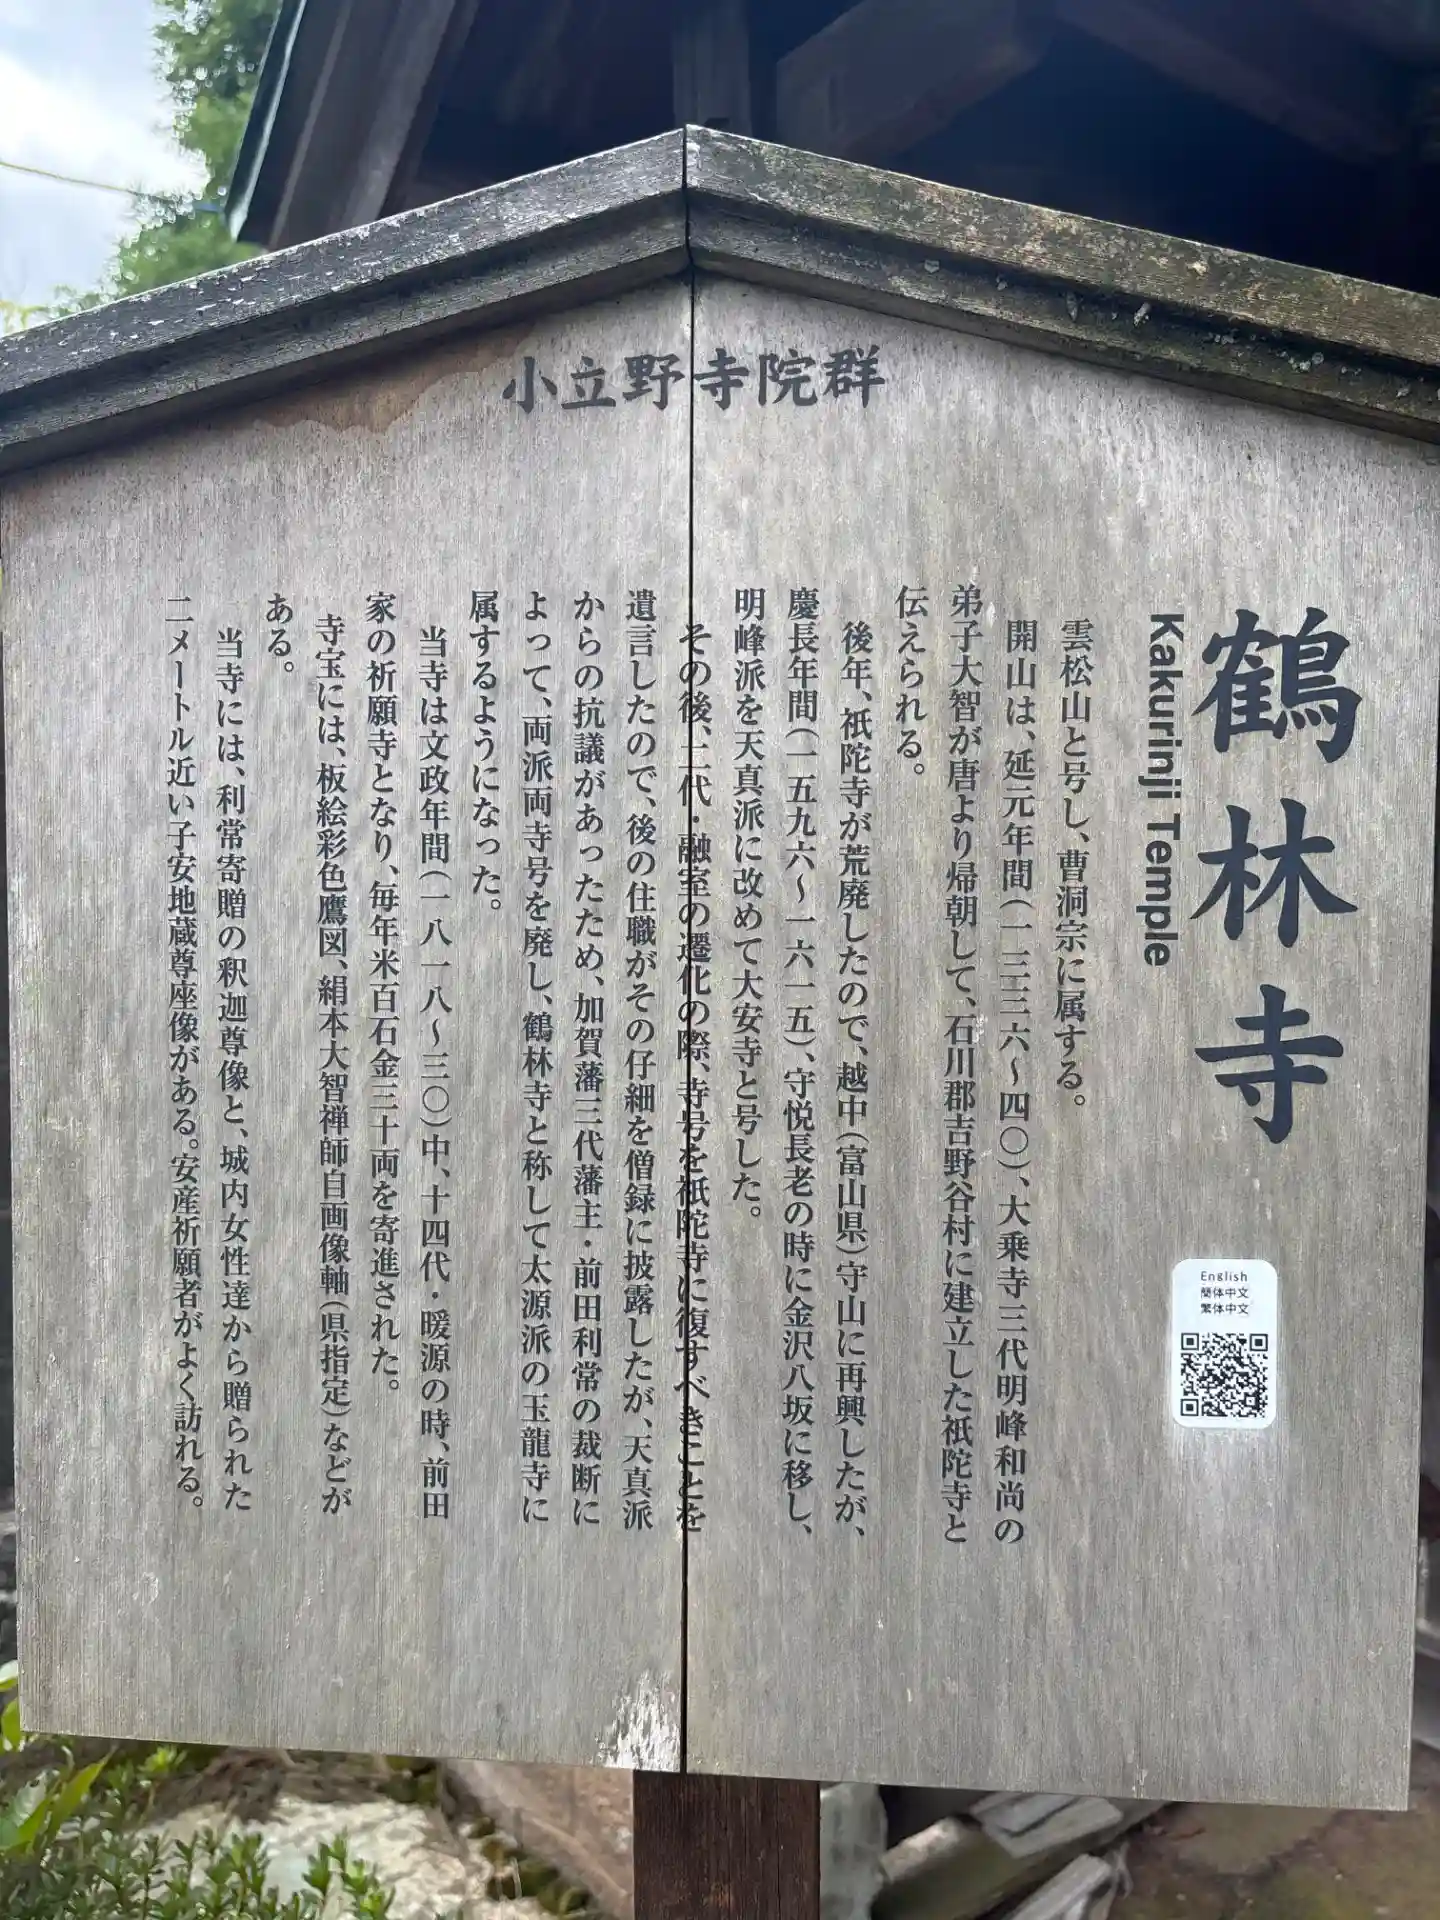 小立野寺院群
鶴林寺
Kakurinji Temple
English
簡体中文
繁体中文
雲松山と号し、曹洞宗に属する。
開山は、延元年間(一三三六〜四〇)、大乗寺三代明峰和尚の
弟子大智が唐より帰朝して、石川郡吉野谷村に建立した祇陀寺と
伝えられる。
後年、祇陀寺が荒廃したので、越中(富山県)守山に再興したが、
慶長年間(一五九六〜一六一五)、守悦長老の時に金沢八坂に移し、
明峰派を天真派に改めて大安寺と号した。
その後、二代・融室の遷化の際、寺号を祇陀寺に復すべきことを
遺言したので、後の住職がその仔細を僧録に披露したが、天真派
からの抗議があったため、加賀藩三代藩主・前田利常の裁断に
よって、両派両寺号を廃し、鶴林寺と称して太源派の玉龍寺に
属するようになった。
当寺は文政年間(一八一八〜三〇)中、十四代・暖源の時、前田
家の祈願寺となり、毎年米百石金三十両を寄進された。
寺宝には、板絵彩色鷹図、絹本大智禅師自画像軸(県指定)などが
ある。
当寺には、利常寄贈の釈迦尊像と、城内女性達から贈られた
二メートル近い子安地蔵尊座像がある。安産祈願者がよく訪れる。